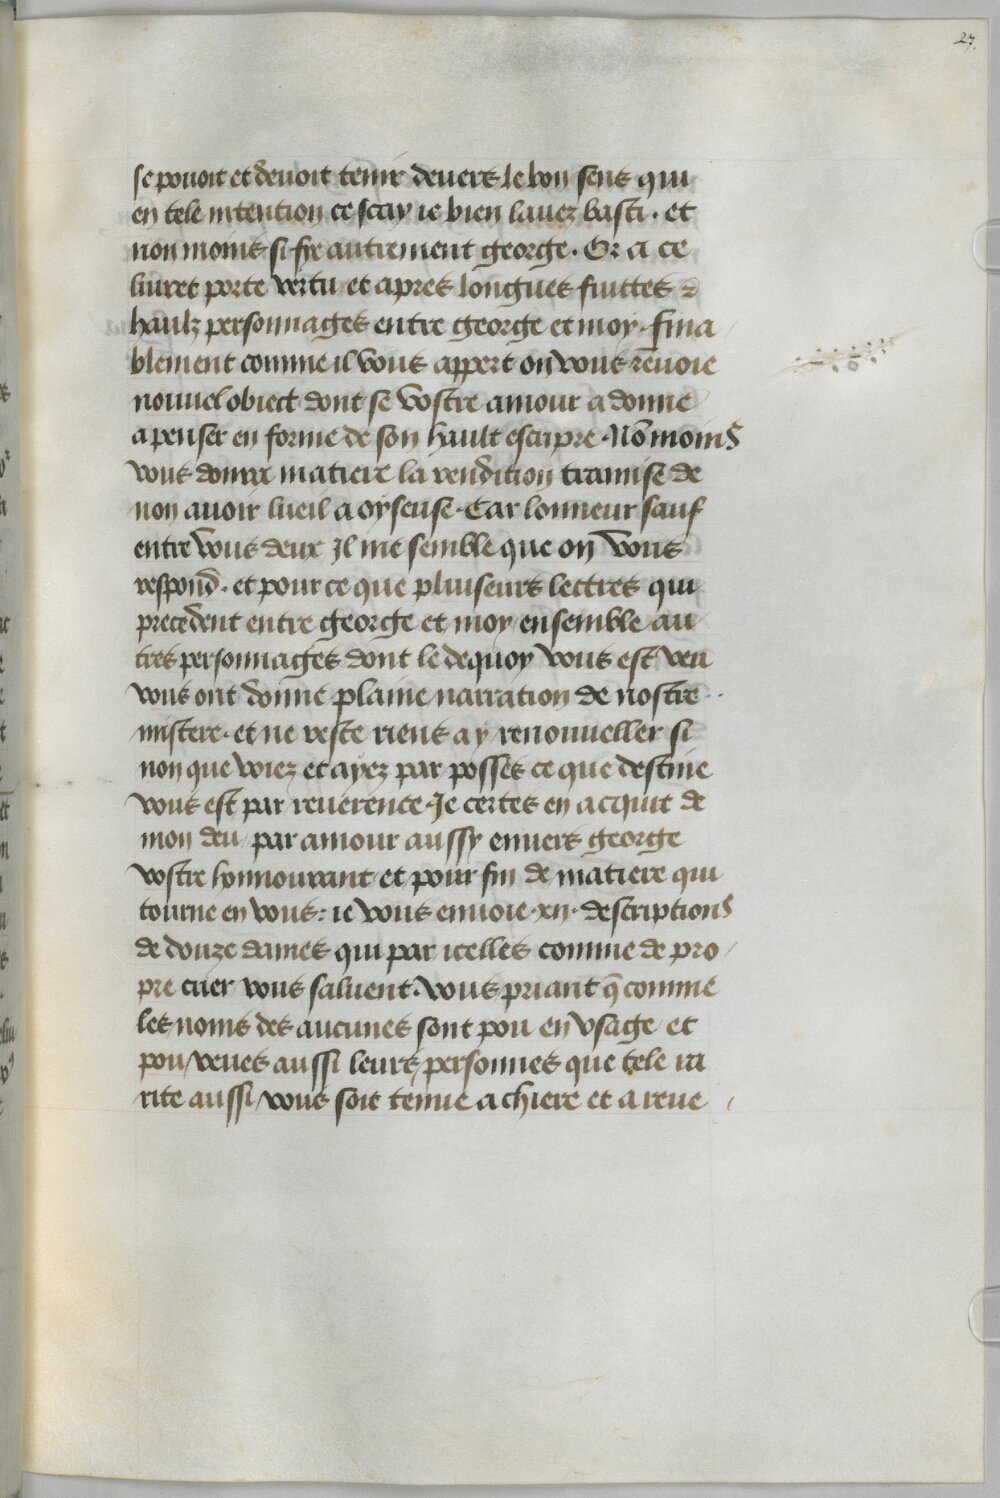 27.
se pouoit et deuoit tenir deuers le bon sens qui
en tele intention ce scay ie bien lauez basti. et
non moins si fye autrement george. Or a ce
liuret porte vertu et apres longues fuittes &
haulz personnages entre george et moy. fina
blement comme il vous appert on vous rēuoie
nouuel obiect dont se vostre amour a donne
a penser en forme de son hault escripre. Nō moins
vous donrre matiere la rendition tramise de
non auoir lueil a oyseuse. Car lonneur sauf
entre vous deux Il me semble que on vous
respond. et pour ce que pluiseurs lectres qui
precedent entre george et moy ensemble au
tres personnages dont le dequoy vous est veu
vous ont donne plaine narration de nostre
mistere. et ne reste riens a y renouueller si
non que voiez et ayez par posses ce que destine
vous est par reuerence. Je certes en acquit de
mon deu par amour aussy enuers george
vostre honnourant et pour fin de matiere qui
tourne en vous: ie vous enuoie .xij. descriptions
de douze dames qui par icelles comme de pro
pre cuer vous saluent. vous priant q̄ comme
les noms des aucunes sont pou en vsage et
pou veues aussi leurs personnes que tele ra
rite aussi vous soit tenue a chiere et a reue